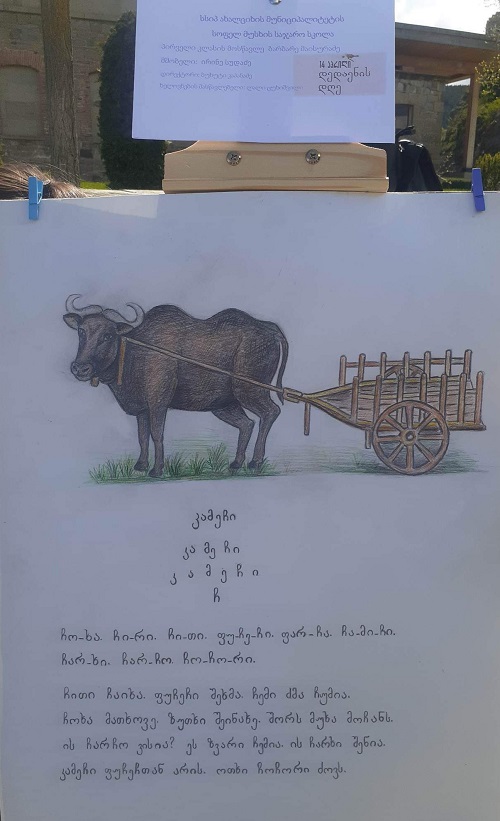 სსიპ ახალციხის მუნიციპალიტეტის
სოფელ მუსხის საჯარო სკოლა
პირველი კლასის მოსწავლე
მშობელი:
დირექტორი:
14 აპრილი
დედაენის
დღე
კამეჩი
კა მე ჩი
კ ა მ ე ჩ ი
ჩ
ჩო-ხა. ჩი-რი. ჩი-თი. ფუ-ჩე-ჩი. ფარ-ჩა. ჩა-მი-ჩი.
ჩარ-ხი. ჩარ-ჩო. ჩო-ჩო-რი.
ჩითი ჩაიხა. ფუჩეჩი შეხმა. ჩემი ძმა ჩუმია.
ჩოხა მათხოვე. ზუთხი შეინახე. შორს მუხა მოჩანს.
ის ჩარჩო ვისია? ეს ზვარი ჩემია. ის ჩარხი შენია.
კამეჩი ფუჩეჩთან არის. ოთხი ჩოჩორი ძოვს.